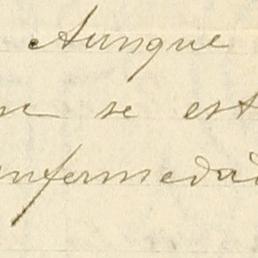 Aunque
se est
enfermedad